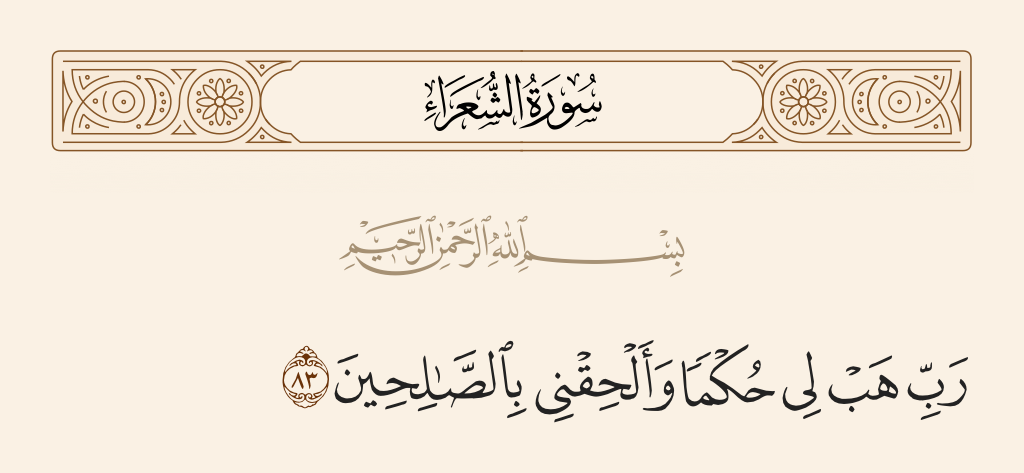 سُورَةُ الشُّعَرَاءِ
بِسْمِ ٱللَّهِ ٱلرَّحْمَٰنِ ٱلرَّحِيمِ
رَبِّ هَبْ لِى حُكْمًا وَأَلْحِقْنِى بِٱلصَّـٰلِحِينَ ٨٣